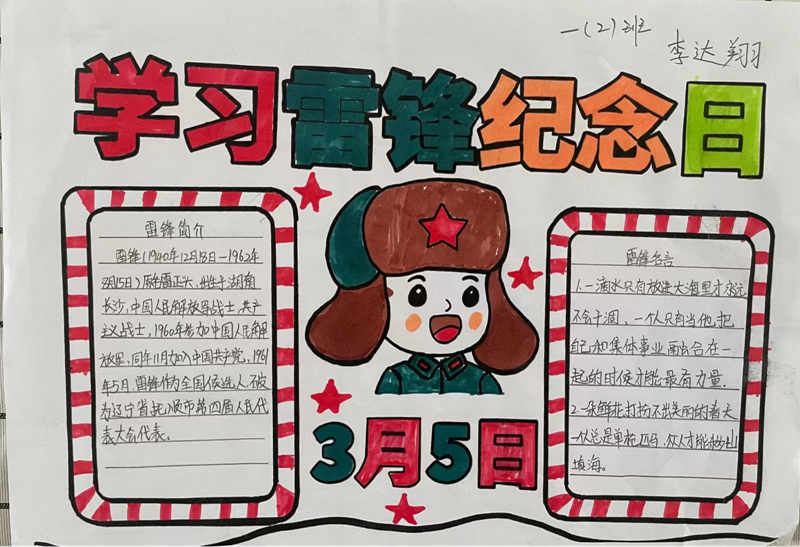 一(2)班
李达翔
学习雷锋纪念日
雷锋简介
雷锋(1940年12月18日—1962年
8月15日)原名雷正兴,出生于湖南
长沙,中国人民解放军战士,共产
主义战士,1960年参加中国人民解
放军,同年11月加入中国共产党,1961
年5月,雷锋作为全国候选人,被
为辽宁省抚顺市第四届人民代
表大会代表.
雷锋名言
1.一滴水只有放进大海里才永远
不会干涸,一个人只有当他把
自己和集体事业融合在一
起的时候才能最有力量.
2.一朵鲜花打扮不出美丽的春天
一个人总是单枪匹马,众人才能移山
填海。
3月5日